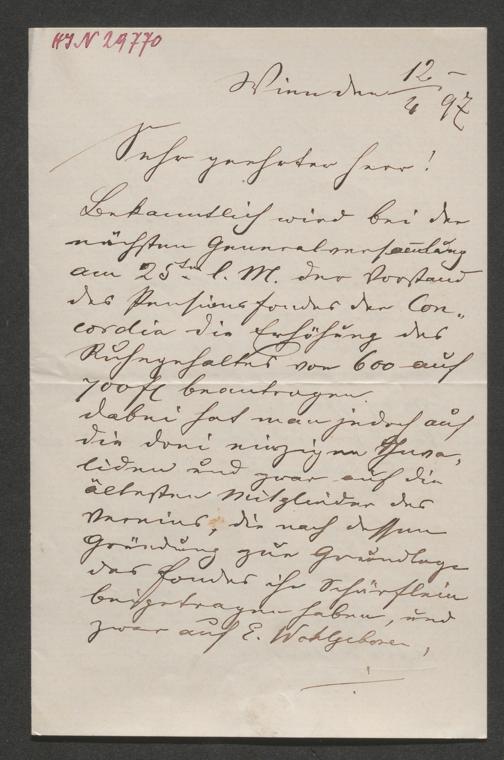 HIN 29770
Wien den 12/4 97
Sehr geehrter Herr!
Bekanntlich wird bei der
nächsten Generalversamlung
am 25ten l. M. der Vorstand
des Pensionsfondes der Con„
cordia die Erhöhung des
Ruhegehaltes von 600 auf
700 fl beantragen.
Dabei hat man jedoch auf
die drei einzigen Inva„
liden und zwar auf die
ältesten Mitglieder des
Vereins, die nach dessen
Gründung zur Grundlage
des Fondes ihr Schärflein
beigetragen haben, und
zwar auf E. Wohlgeboren,